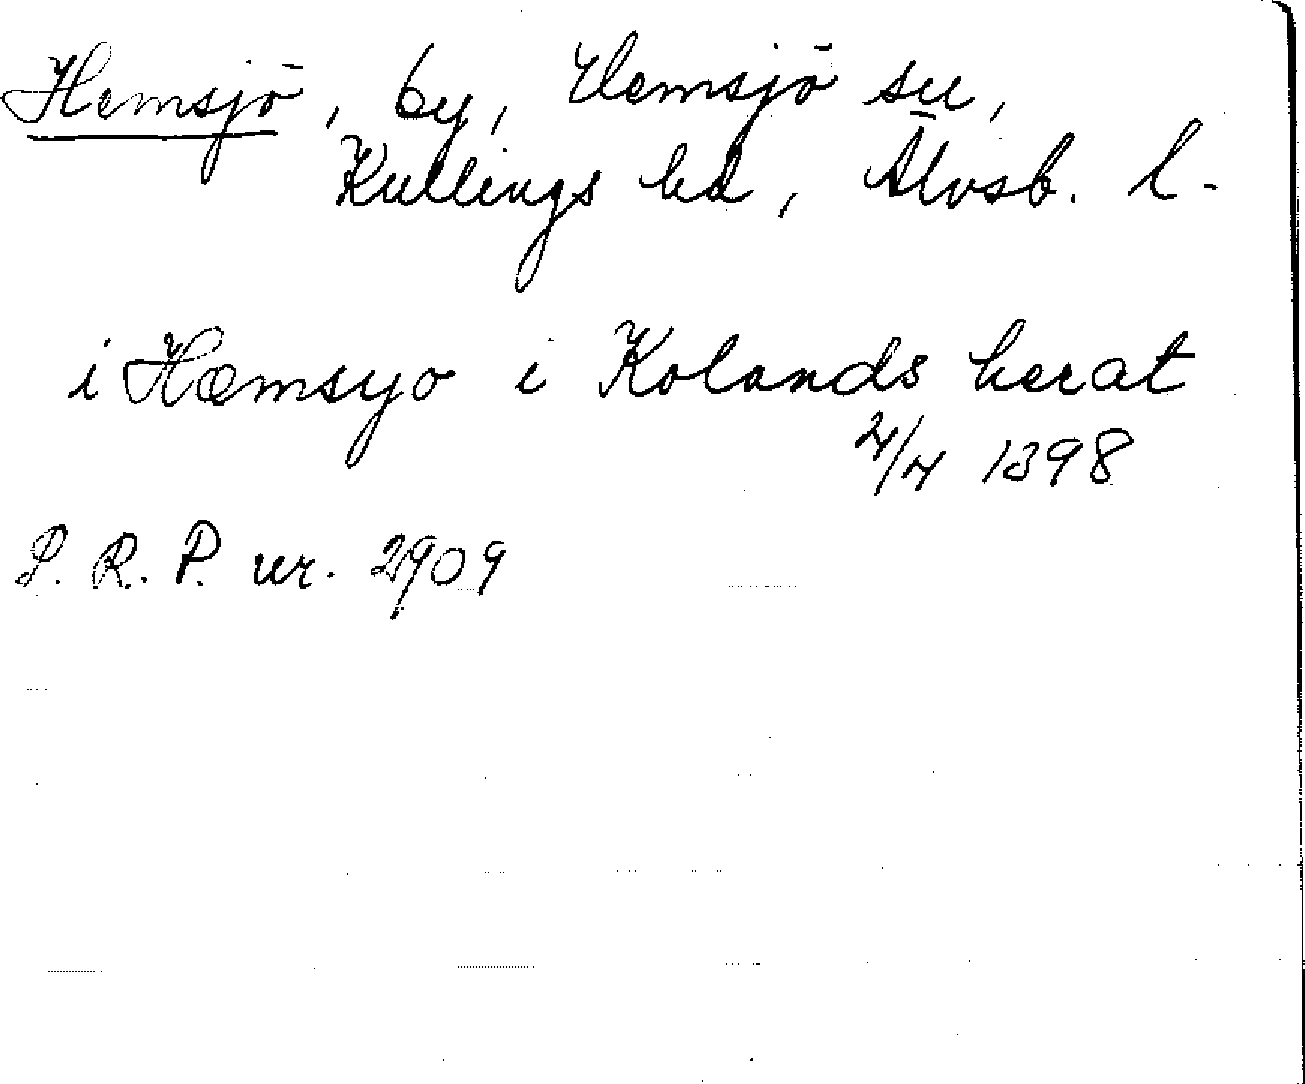 Hemsjö, by, Hemsjö sn,
Kullings hd, Älvsb. l.
i Hæmsyo i Kolands herat
4/4 1398
S. R. P. nr. 2909